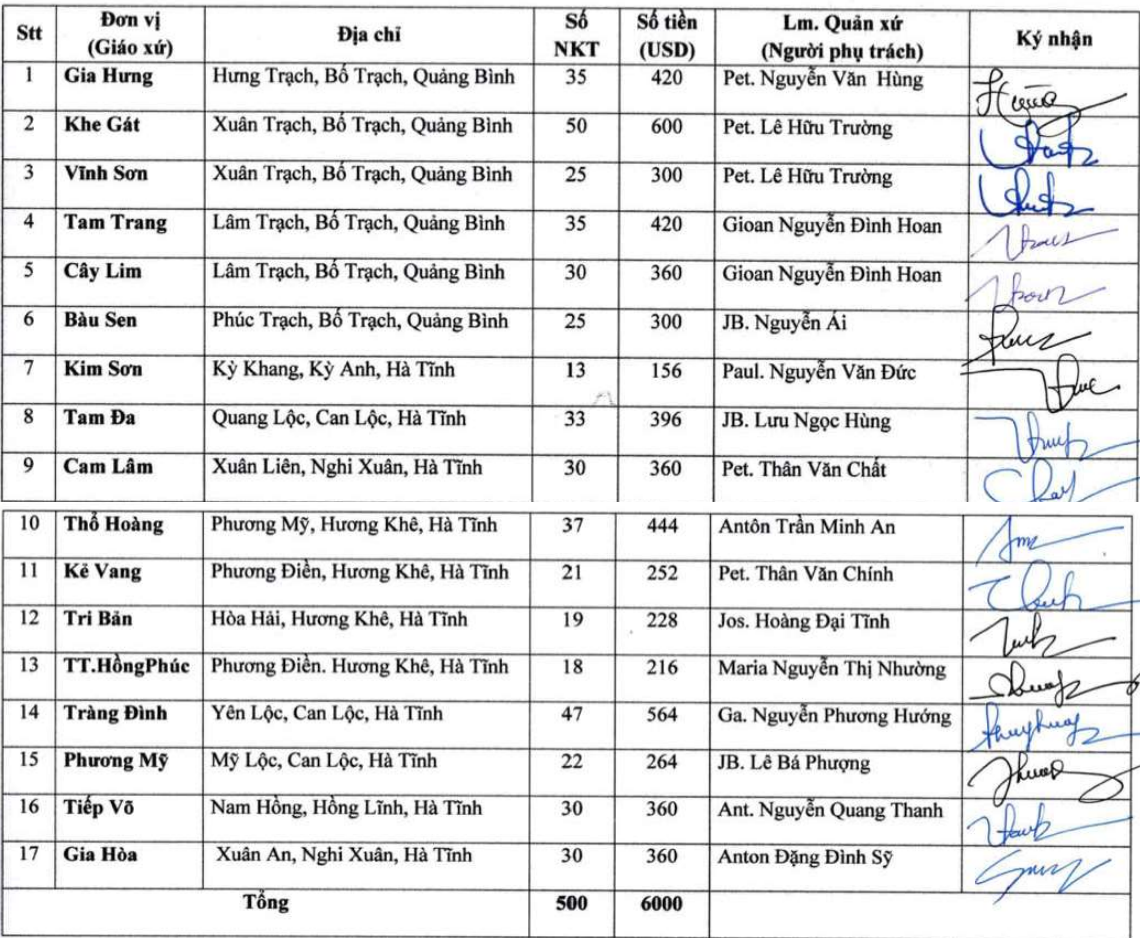 Stt Đơn vị (Giáo xứ) Địa chỉ Số NKT Số tiền (USD) Lm. Quản xứ (Người phụ trách) Ký nhận
1 Gia Hưng Hưng Trạch, Bố Trạch, Quảng Bình 35 420 Pet. Nguyễn Văn Hùng
2 Khe Gát Xuân Trạch, Bố Trạch, Quảng Bình 50 600 Pet. Lê Hữu Trường
3 Vĩnh Sơn Xuân Trạch, Bố Trạch, Quảng Bình 25 300 Pet. Lê Hữu Trường
4 Tam Trang Lâm Trạch, Bố Trạch, Quảng Bình 35 420 Gioan Nguyễn Đình Hoan
5 Cây Lim Lâm Trạch, Bố Trạch, Quảng Bình 30 360 Gioan Nguyễn Đình Hoan
6 Bàu Sen Phúc Trạch, Bố Trạch, Quảng Bình 25 300 JB. Nguyễn Ái
7 Kim Sơn Kỳ Khang, Kỳ Anh, Hà Tĩnh 13 156 Paul. Nguyễn Văn Đức
8 Tam Đa Quang Lộc, Can Lộc, Hà Tĩnh 33 396 JB. Lưu Ngọc Hùng
9 Cam Lâm Xuân Liên, Nghi Xuân, Hà Tĩnh 30 360 Pet. Thân Văn Chất
10 Thổ Hoàng Phương Mỹ, Hương Khê, Hà Tĩnh 37 444 Antôn Trần Minh An
11 Kẻ Vang Phương Điền, Hương Khê, Hà Tĩnh 21 252 Pet. Thân Văn Chính
12 Tri Bản Hòa Hải, Hương Khê, Hà Tĩnh 19 228 Jos. Hoàng Đại Tĩnh
13 TT.HồngPhúc Phương Điền. Hương Khê, Hà Tĩnh 18 216 Maria Nguyễn Thị Nhường
14 Tràng Đình Yên Lộc, Can Lộc, Hà Tĩnh 47 564 Ga. Nguyễn Phương Hướng
15 Phương Mỹ Mỹ Lộc, Can Lộc, Hà Tĩnh 22 264 JB. Lê Bá Phượng
16 Tiếp Võ Nam Hồng, Hồng Lĩnh, Hà Tĩnh 30 360 Ant. Nguyễn Quang Thanh
17 Gia Hòa Xuân An, Nghi Xuân, Hà Tĩnh 30 360 Anton Đặng Đình Sỹ
Tổng 500 6000